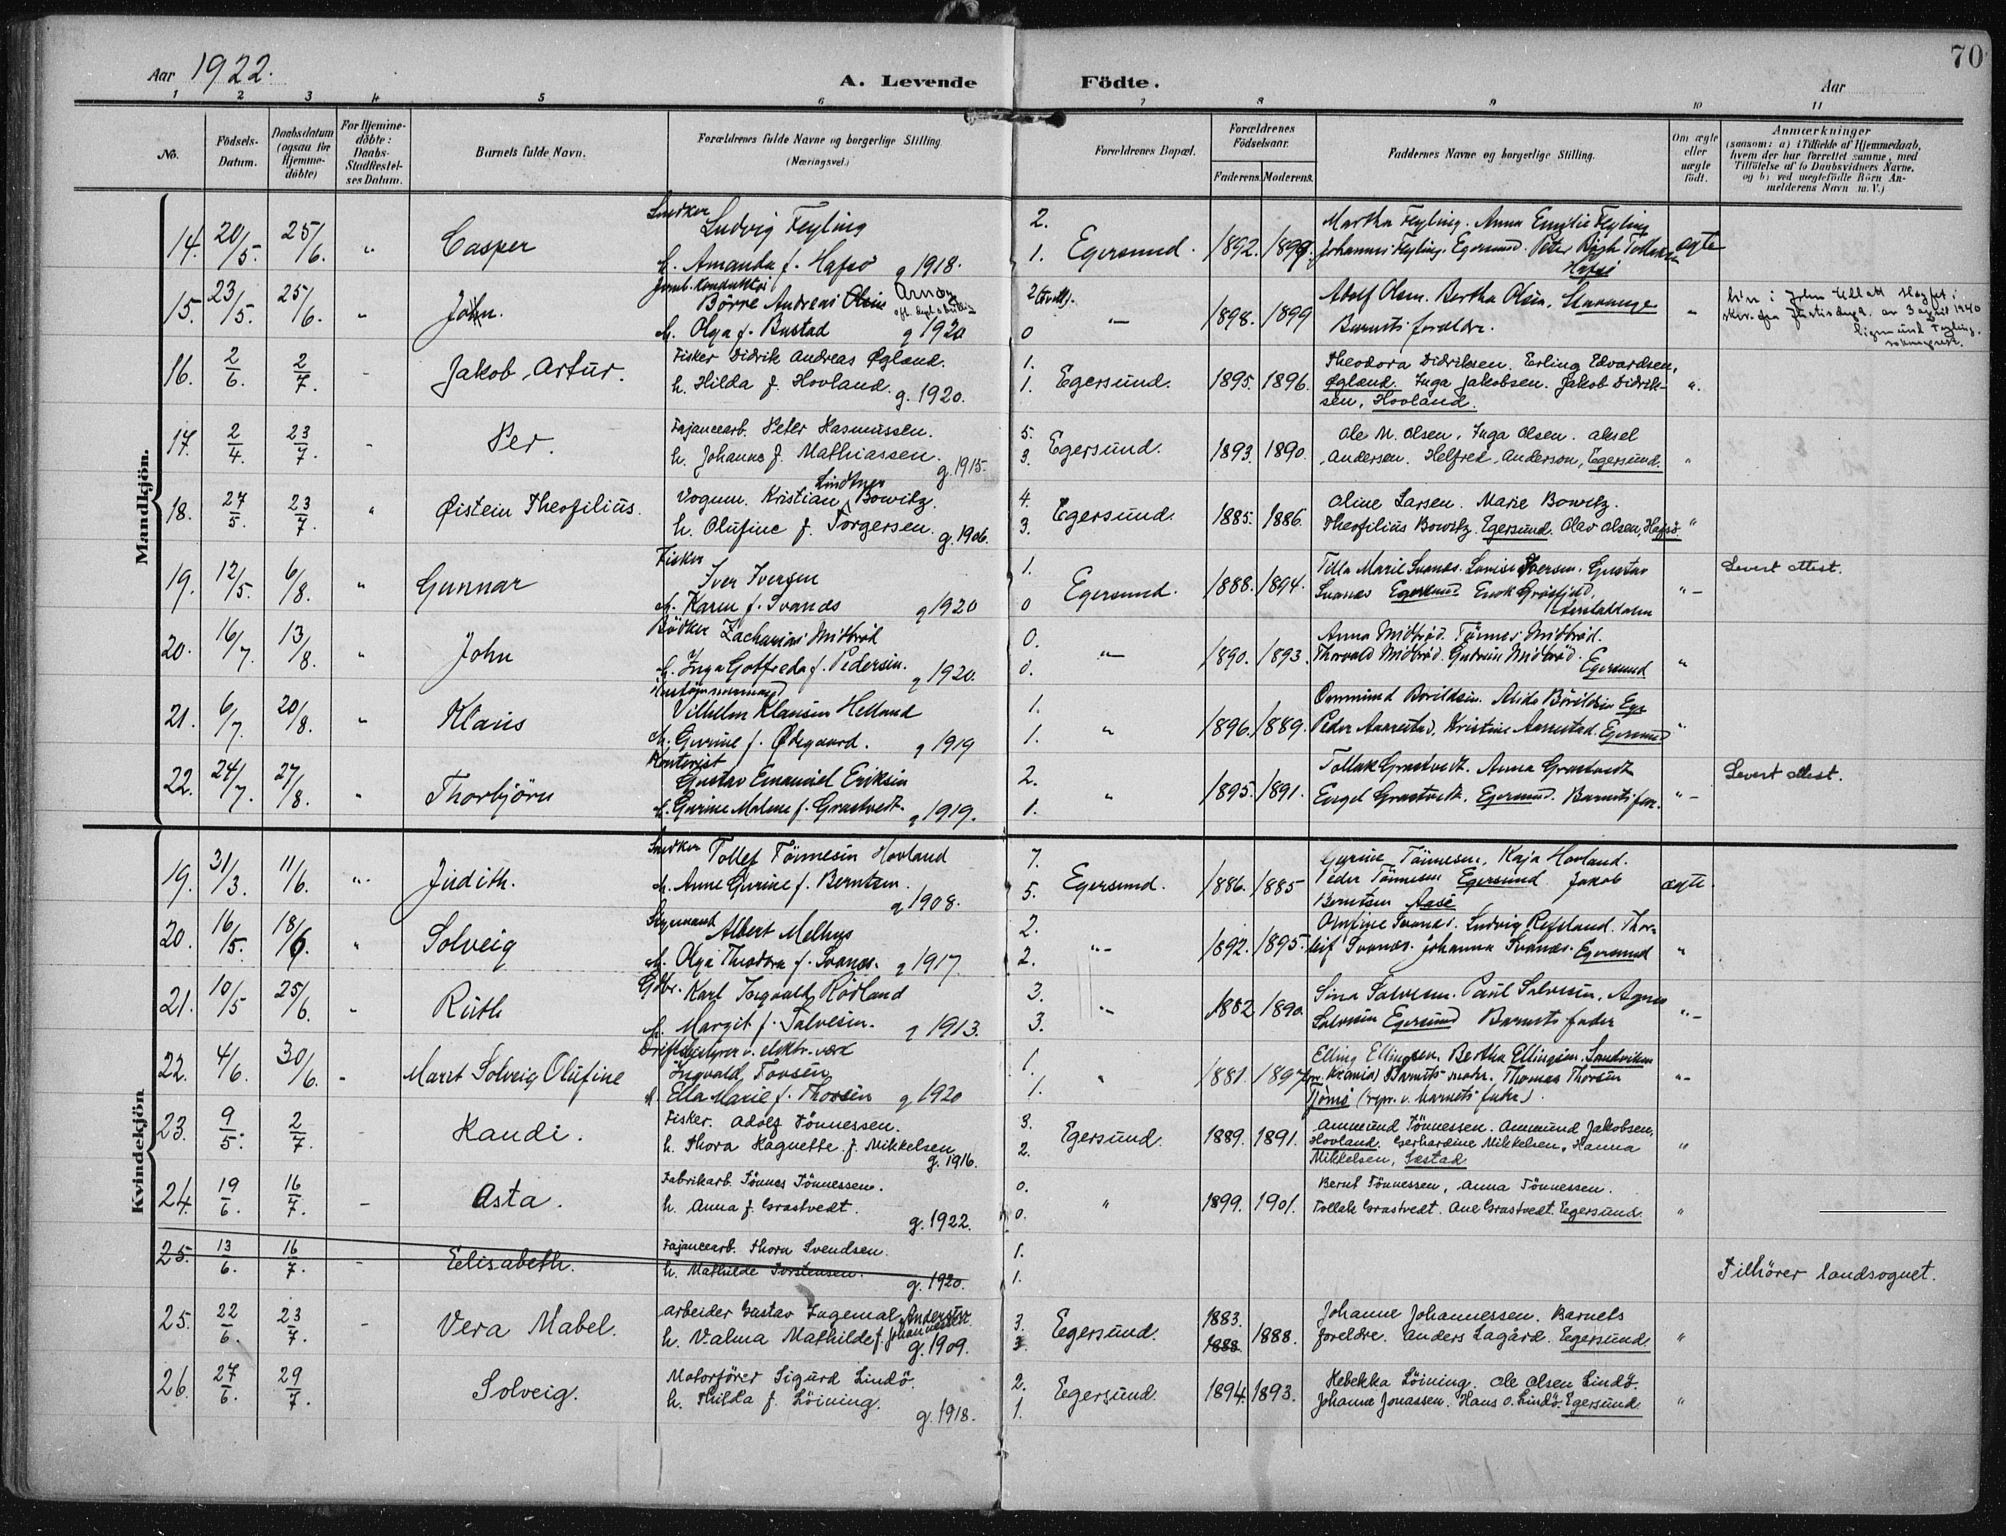 70
Aar 1922.
A. Levende Födte.
Aar
1 2 3 4 5 6 7 8 9 10 11
No.
Födsels-
Datum.
Daabsdatum
(ogsaa for
Hjemme-
döbte)
For Hjemme-
döbte:
Daabs-
Stadfæstel-
ses Datum.
Barnets fulde Navn.
Forældrenes fulde Navne og borgerlige Stilling
(Næringsvei.)
Forældrenes Bopæl.
Forældrenes
Födselsaar.
Faderens. Moderens.
Faddernes Navne og borgerlige Stilling.
Om ægte
eller
uægte
födt.
Anmærkninger
(saasom: a) i Tilfælde af Hjemmedaab,
hvem der har forrettet samme, med
Tilföielse af to Daabsvidners Navne.
og b) ved uægtefödte Börn An-
melderens Navn m. V.)
Mandkjön.
Snekker
Ludvig Feyling
2. Martha Feyling. Anna Emilie Feyling
14. 20/5. 25/6. " Casper
h. Amanda f. Hafsö g 1918.
1. Egersund. 1892. 1899. Johannes Feyling. Egersund. Peter Bögh Tollaksen ægte
Hafsö
15. 23/5. 25/6. " John.
Börre Andreas Olsen Arnöy
h. Olga f. Bustad g 1920
2 0 — " — 1898. 1899
Adolf Olsen. Bertha Olsen. Stavanger
Barnets forældre. "
16. 2/6. 2/7. - Jakob Artur.
Fisker Didrik Andreas Øgland.
h. Hilda f. Hovland. g. 1920.
1. 1. Egersund. 1895. 1896.
Theodora Didriksen. Erling Edvardsen,
Øgland. Inga Jakobsen. Jakob Didrik-
sen, Hovland. "
17. 2/4. 23/7. - Per.
Fajancearb. Peter Rasmussen.
h. Johanne f. Mathiassen. g. 1915.
5. 3. Egersund. 1893. 1890.
Ole M. Olsen. Inga Olsen. Aksel
Andersen. Helfred Anderson, Egersund. "
18. 27/5. 23/7. " Øistein Theofilius.
Lindtner
Vognm. Kristian Bowitz.
h. Olufine f. Torgersen. g. 1906.
4. 3. Egersund. 1885. 1886.
Oline Larsen. Marie Bowitz.
Theofilius Bowitz, Egersund. Olav Olsen, Hafsö. "
19. 12/5. 6/8. " Gunnar
Fisker
Iver Iversen
h. Karen f. Svanes g 1920
1. 0 Egersund. 1888. 1894.
Tilla Marie Svanes. Lovise Iversen. Gustav
Svanæs Egersund " —
Levert attest.
20. 16/7. 13/8. " John
Bödker Zacharias Midbröd
h. Inga Gotfreda f. Pedersen. g 1920.
0. 0. — " — 1890. 1893.
Anna Midbröd. Tönnes Midbröd.
Thorvald Midbröd. Gudrun Midbröd.
Egersund "
21. 6/7. 20/8. " Klaus
Vilhelm Klausen Helland
h. Gurine f. Ødegaard. g 1919
1. 1. " 1896. 1889.
Ommund Bövildsen. Alida Bövildsen Egr
Peder Aarrestad. Kristine Aarrestad. Egersund "
22. 24/7. 27/8. " Thorbjörn
Kontorist
Gustav Emanuel Eriksen
h. Gurine Malene f. Grastvedt. g 1919.
2. 1. " 1895. 1891.
Tollak Grastvedt. Anna Grastvedt
Engel Grastvedt. Egersund. Barnets far. " —
Levert attest.
Kvindekjön
19. 31/3. 11/6. " Judith.
Snekker Tollef Tönnesen Hovland
h. Anne Gurine f. Berntsen. g 1908.
7. 5. Egersund. 1886. 1885
Gurine Tönnesen, Kaja Hovland.
Peder Tönnesen Egersund. Jakob
Berntsen Aase ægte.
20. 16/5. 18/6. " Solveig
Styrmand
Albert Melhus
h. Olga Theodora f. Svanæs. g 1917.
2. 2. " — 1892. 1895.
Olufine Svanes. Ludvig Refsland. Thor-
leif Svanæs. Johanna Svanæs. Egersund "
21. 10/5 25/6. " Ruth
Gdbr. Karl Ingvald Rödland
h. Margit f. Salvesen. g 1913.
3. 3. " 1882 1890.
Sina Salvesen. Paul Salvesen, Agnes
Salvesen Egersund Barnets fader " —
22. 4/6. 30/6. - Marit Solveig Olufine
Driftsbestyrer v. elektr. verk
Ingvald Tovsen
h. Ella Marie f. Thorsen g 1920
1. 1. " 1881.
Elling Ellingsen. Bertha Ellingsen. Sandviken
Thomas Thorsen
Tjömö (repr. v. barnets fader). " —
23. 9/5. 2/7. - Randi.
Fisker. Adolf Tönnessen.
h. Thora Ragnette f. Mikkelsen. g. 1916.
3. 2. Egersund. 1889. 1891.
Ommund Tönnessen. Ommund Jakobsen,
Hovland. Gerhardine Mikkelsen, Hanna
Mikkelsen, Sæstad "
24. 19/6. 16/7. - Asta.
Fabrikarb. Tönnes Tönnessen.
h. Anna f. Grastvedt. g. 1922.
0. 0. " 1899. 1901.
Bernt Tönnessen, Anna Tönnessen.
Tollak Grastvedt. Ane Grastvedt. Egersund. "
25. 13/6. 16/7. - Elisabeth.
Fajancearb. Thorn Svendsen.
h. Mathilde Torstensen. g. 1920.
1. 1.
Tilhörer landsognet.
25. 22/6. 23/7. - Vera Mabel.
Arbeider Gustav Ingemal Anderson
h. Valma Mathilde f. Johannessen. g. 1909.
3. 3. Egersund. 1883. 1888 1888.
Johanne Johannessen. Barnets
foreldre. Anders Lagård. Egersund. "
26. 27/6. 29/7. Solveig.
Motorförer Sigurd Lindö.
h. Thilda f. Löining. g. 1918.
2. 1. Egersund. 1894. 1893.
Rebekka Löining. Ole Olsen Lindö.
Johanne Jonassen. Hans O. Lindö. Egersund. "